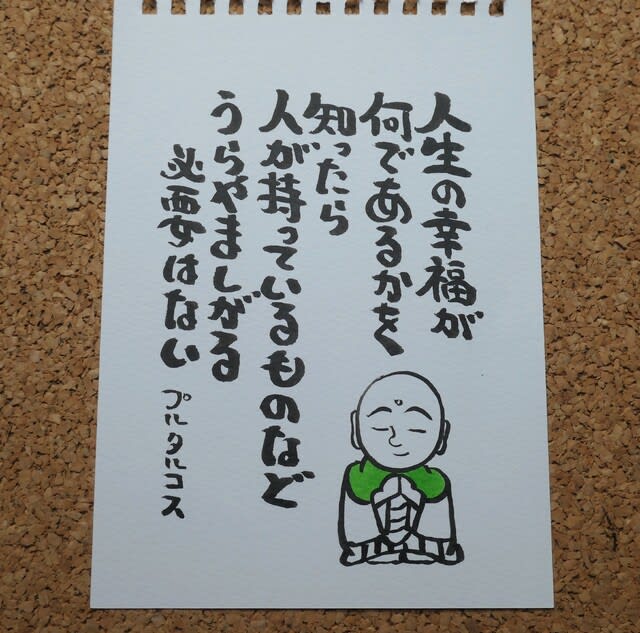 人生の幸福が
何であるかを
知ったら
人が持っているものなど
うらやましがる
必要はない
プルタルコス